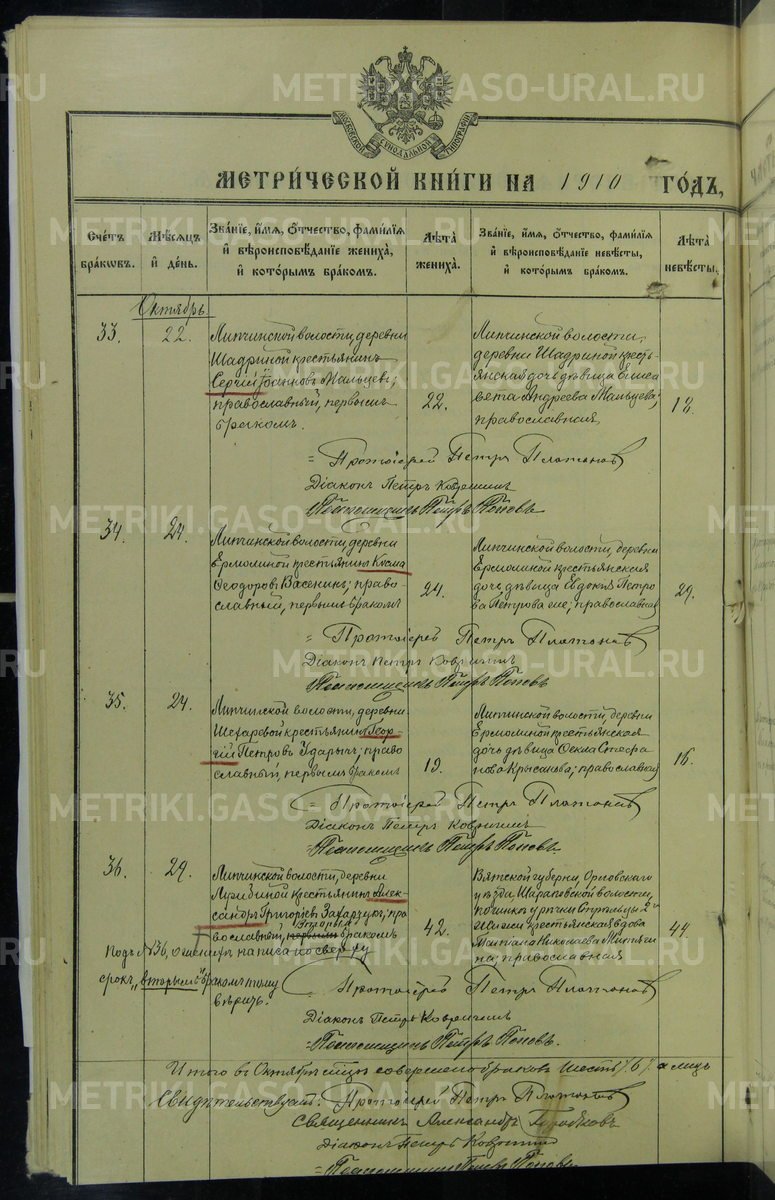 МЕТРИ́ЧЕСКОЙ КНИ́ГИ НА 1910 ГО́ДЪ,
Сче́тъ бра́ковъ.
Мѣ́сяцъ и де́нь.
Зва́нїе, и́мя, о́тчество, фами́лїя и вѣроисповѣ́данїе жениха̀, и кото́рымъ бра́комъ.
Лѣ́та жениха̀.
Зва́нїе, и́мя, о́тчество, фами́лїя и вѣроисповѣ́данїе невѣ́сты, и кото́рымъ бра́комъ.
Лѣ́та невѣ́сты.
Октябрь.
33.
22.
Липчинской волости, деревни
Шадриной крестьянинъ
Сергий Іоанновъ Мальцевъ;
православный, первымъ
бракомъ.
22.
Липчинской волости,
деревни Шадриной кресть-
янская дочь дѣвица Елиса
вета Андреева Мальцева;
православная,
18.
Протоіерей Петръ Платоновъ
Діаконъ Петръ Ковригинъ
Псаломщикъ Петръ Поповъ
34.
24.
Липчинской волости, деревни
Ермолиной крестьянинъ Косма
Ѳеодоровъ Васенинъ; право-
славный, первымъ бракомъ
24.
Липчинской волости, деревни
Ермолиной крестьянская
дочь дѣвица Евдокія Петро
ва; православная
29.
Протоіерей Петръ Платоновъ
Діаконъ Петръ Ковригинъ
Псаломщикъ Петръ Поповъ
35.
24.
Липчинской волости, деревни
крестьянинъ Геор-
гій Петровъ право
славный, первымъ бракомъ
19.
Липчинской волости, деревни
Ермолиной крестьянская
дочь дѣвица Стефа
нова православная
16.
Протоіерей Петръ Платоновъ
Діаконъ Петръ Ковригинъ
Псаломщикъ Петръ Поповъ
36.
29.
Липчинской волости, деревни
крестьянинъ Алек-
сандръ Григорьевъ пра
вославный, первымъ вторымъ бракомъ
42.
Вятской губерніи, Орловскаго
уѣзда, волости,
починка
крестьянская вдова
Наталія Николаева
православная
44.
Подъ №36, написано сверху
строкъ "вторымъ" бракомъ тому
вѣрить.
Протоіерей Петръ Платоновъ
Діаконъ Петръ Ковригинъ
Псаломщикъ Петръ Поповъ.
Итого въ Октябрѣ совершено браковъ шесть /6/
Свидѣтельствуемъ: Протоіерей Петръ Платоновъ
Священникъ Александръ
Діаконъ Петръ Ковригинъ
Псаломщикъ Петръ Поповъ
METRIKI.GASO-URAL.RU